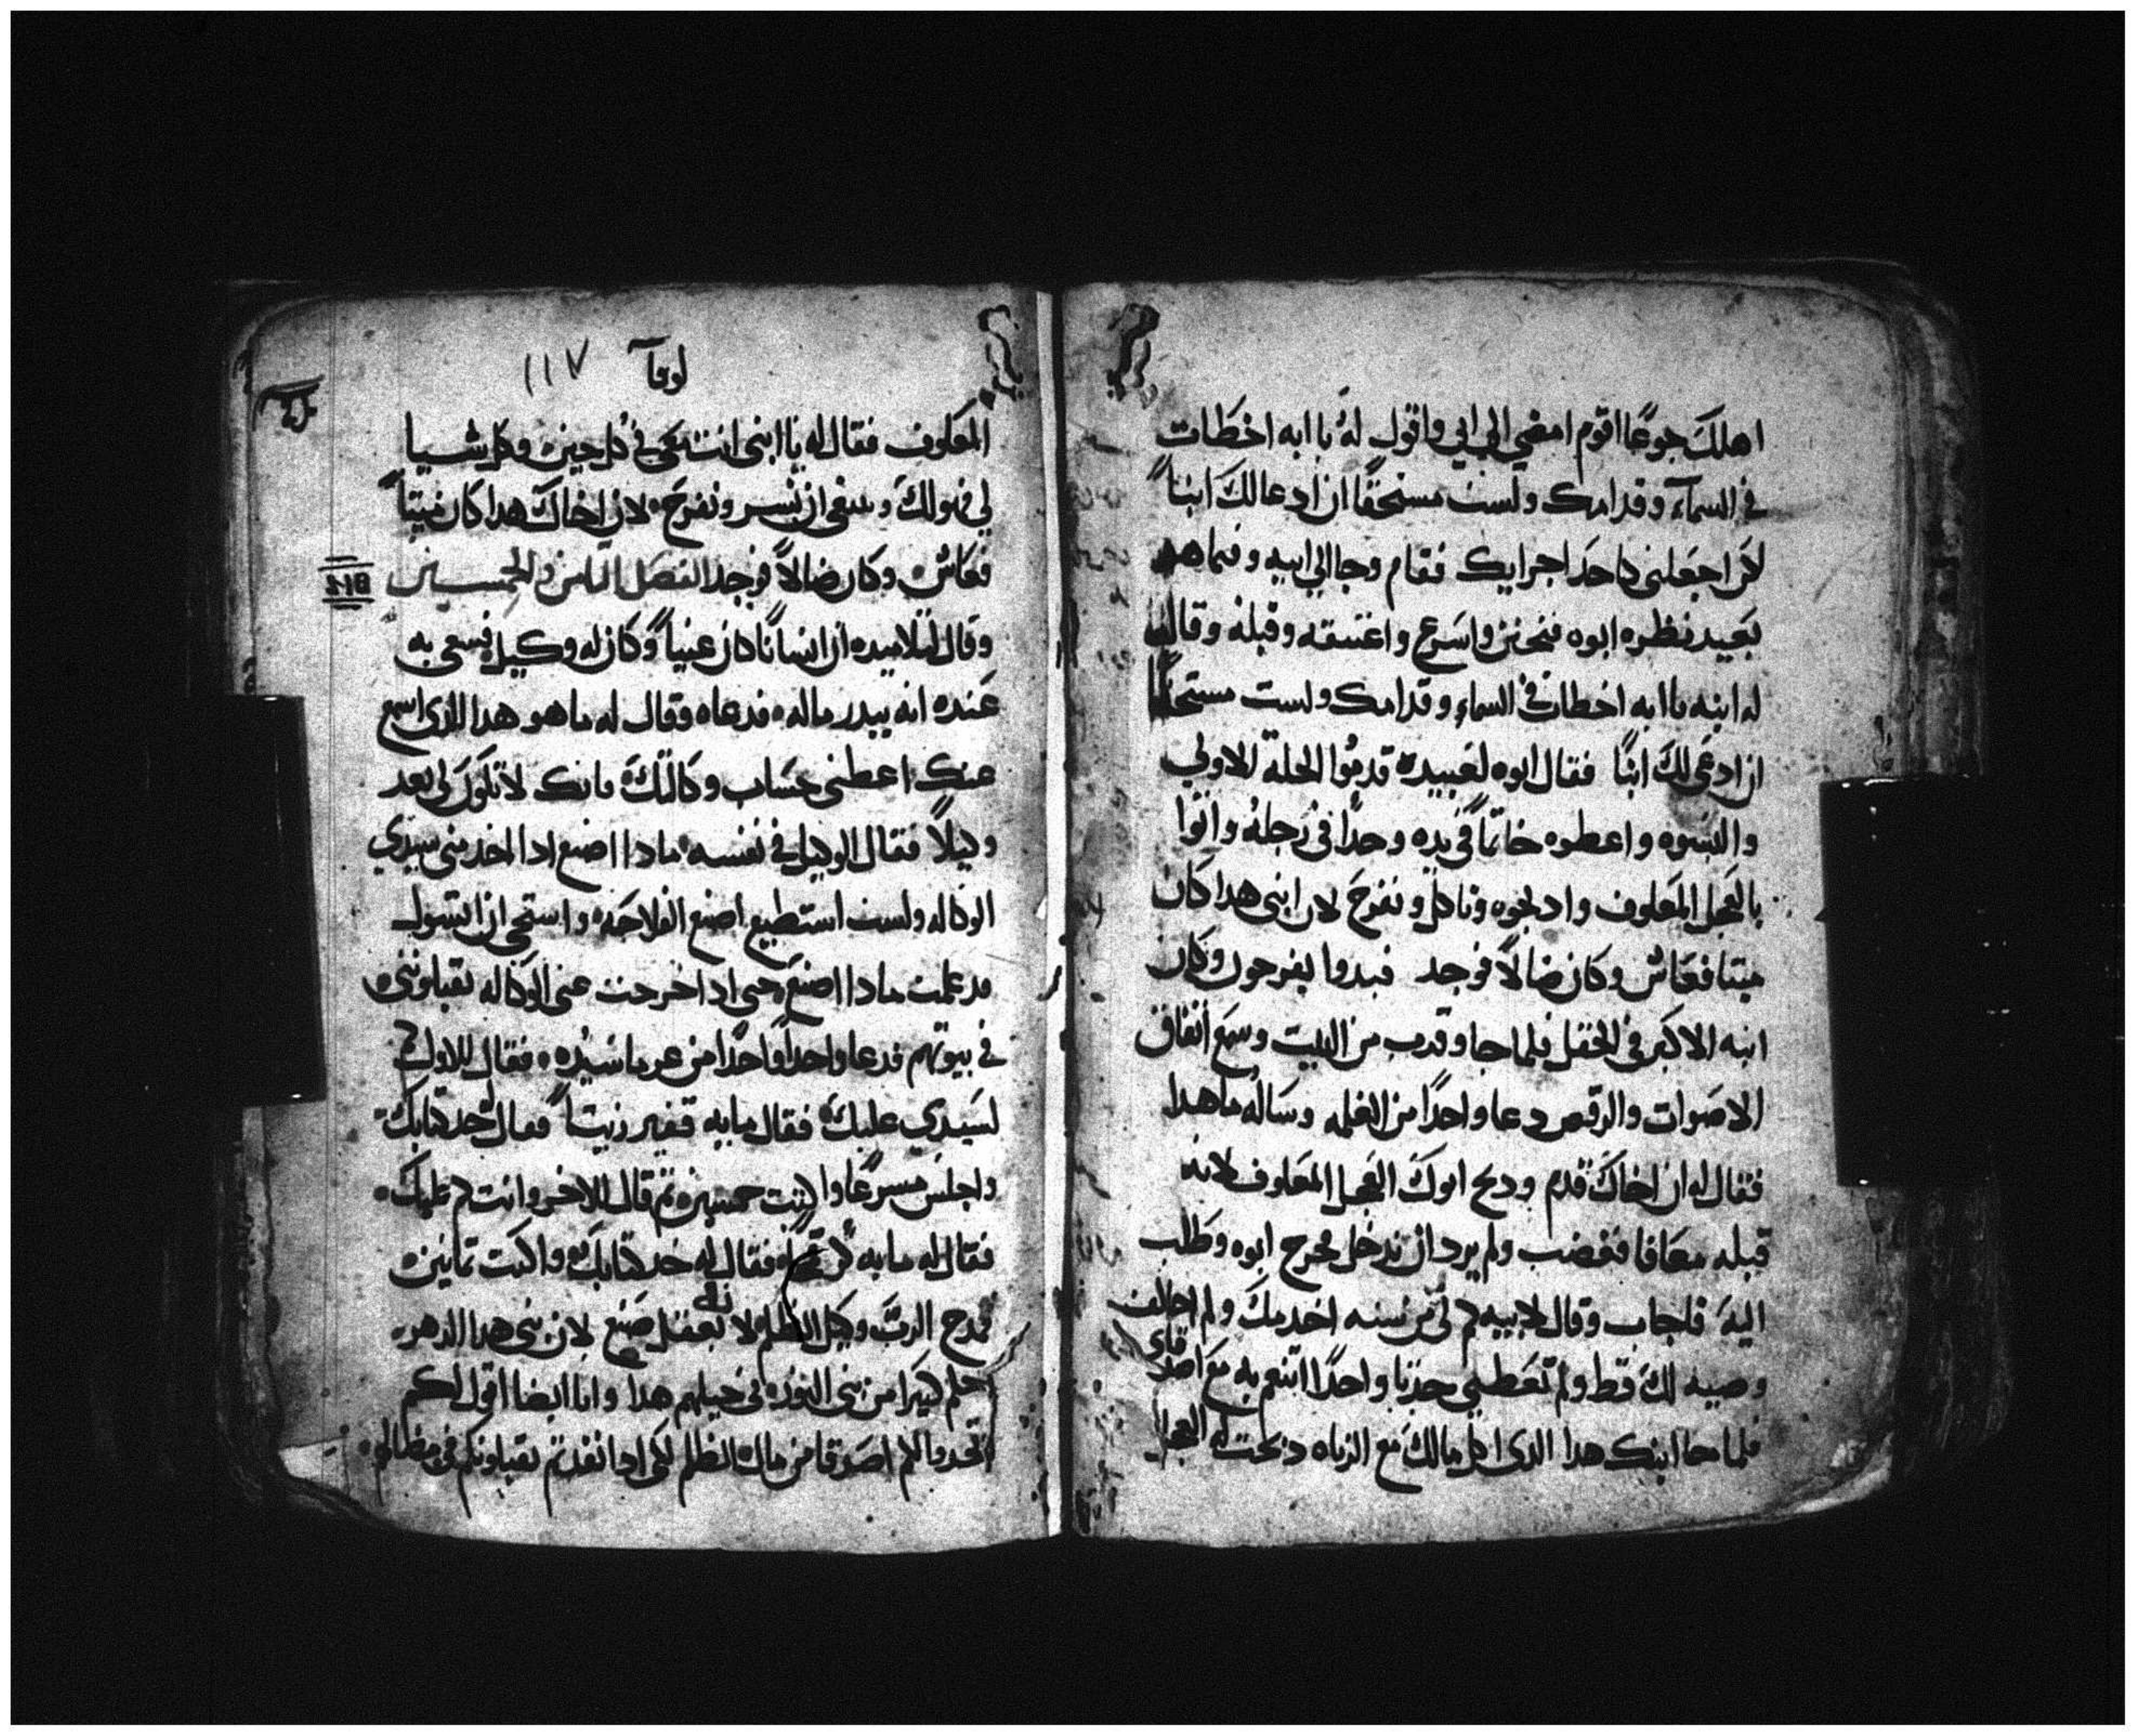 اهلك جوعًا اقوم امضي الي ابي واقول له يا ابه اخطات
في السمآء وقدامك ولست مستحقًا ان ادعا لك ابنًا
لكن اجعلني كاحد اجرايك فقام وجا الي ابيه وفيما هو
بعيد نظره ابوه فتحنن واسرع واعتنقه وقبله وقال
له ابنه يا ابه اخطات في السماء وقدامك ولست مستحقًا
ان ادعي لك ابنًا فقال ابوه لعبيده قدموا الحلة الاولي
والبسوه واعطوه خاتمًا في يده وحدًا في رجله واتوا
بالعجل المعلوف وادبحوه وناكل ونفرح لان ابني هدا كان
ميتا فعاش وكان ضالًا فوجد فبدوا يفرحون وكان
ابنه الاكبر في الحقل فلما جا وقرب من البيت وسمع اتفاق
الاصوات والرقص دعا واحدًا من الغلمه وساله ما هدا
فقال له ان اخاك قدم ودبح ابوك العجل المعلوف لانه
قبله معافا فغضب ولم يرد ان يدخل فخرج ابوه وطلب
اليه فاجاب وقال لابيه كم لي من سنه اخدمك ولم اخالف
وصيه لك قط ولم تعطيني جديا واحدًا اتنعم به مع اصدقاي
فلما جا ابنك هدا الدي اكل مالك مع الزناه دبحت له العجل
لوقآ ١١٧
المعلوف فقال له يا ابني انت معي في كل حين وكل شيا
لي فهو لك وينبغي ان نسر ونفرح لان اخاك هدا كان ميتًا
فعاش وكان ضالًا فوجد الفصل التامن والخمسين
وقال لتلاميده ان انسانًا كان غنيًا وكان له وكيل فسعي به
عنده انه يبدر ماله فدعاه وقال له ما هو هدا الدي اسمع
عنك اعطني حساب وكالتك فانك لا تكون لي بعد
وكيلًا فقال الوكيل في نفسه مادا اصنع ادا اخد مني سيدي
الوكاله ولست استطيع اصنع الفلاحه واستحي ان اتسول
قد علمت مادا اصنع حتي ادا اخرجت عني الوكاله تقبلوني
في بيوتهم فدعا واحدًا فاحدًا من غرما سيده فقال للاول كم
لسيدي عليك فقال مايه قفير زيتًا فقال خد كتابك
واجلس مسرعًا واكتب خمسين تم قال للاخر وانت كم عليك
فقال له مايه كر قمح فقال له خد كتابك واكتب تمانين
فمدح الرب وكيل الظلم لانه بعقل صنع لان بني هدا الدهر
احلم كتيرا من بني النور في جيلهم هدا وانا ايضا اقول لكم
اتخدوا لكم اصدقا من مال الظلم لكي ادا نفدتم يقبلونكم في مظالهم